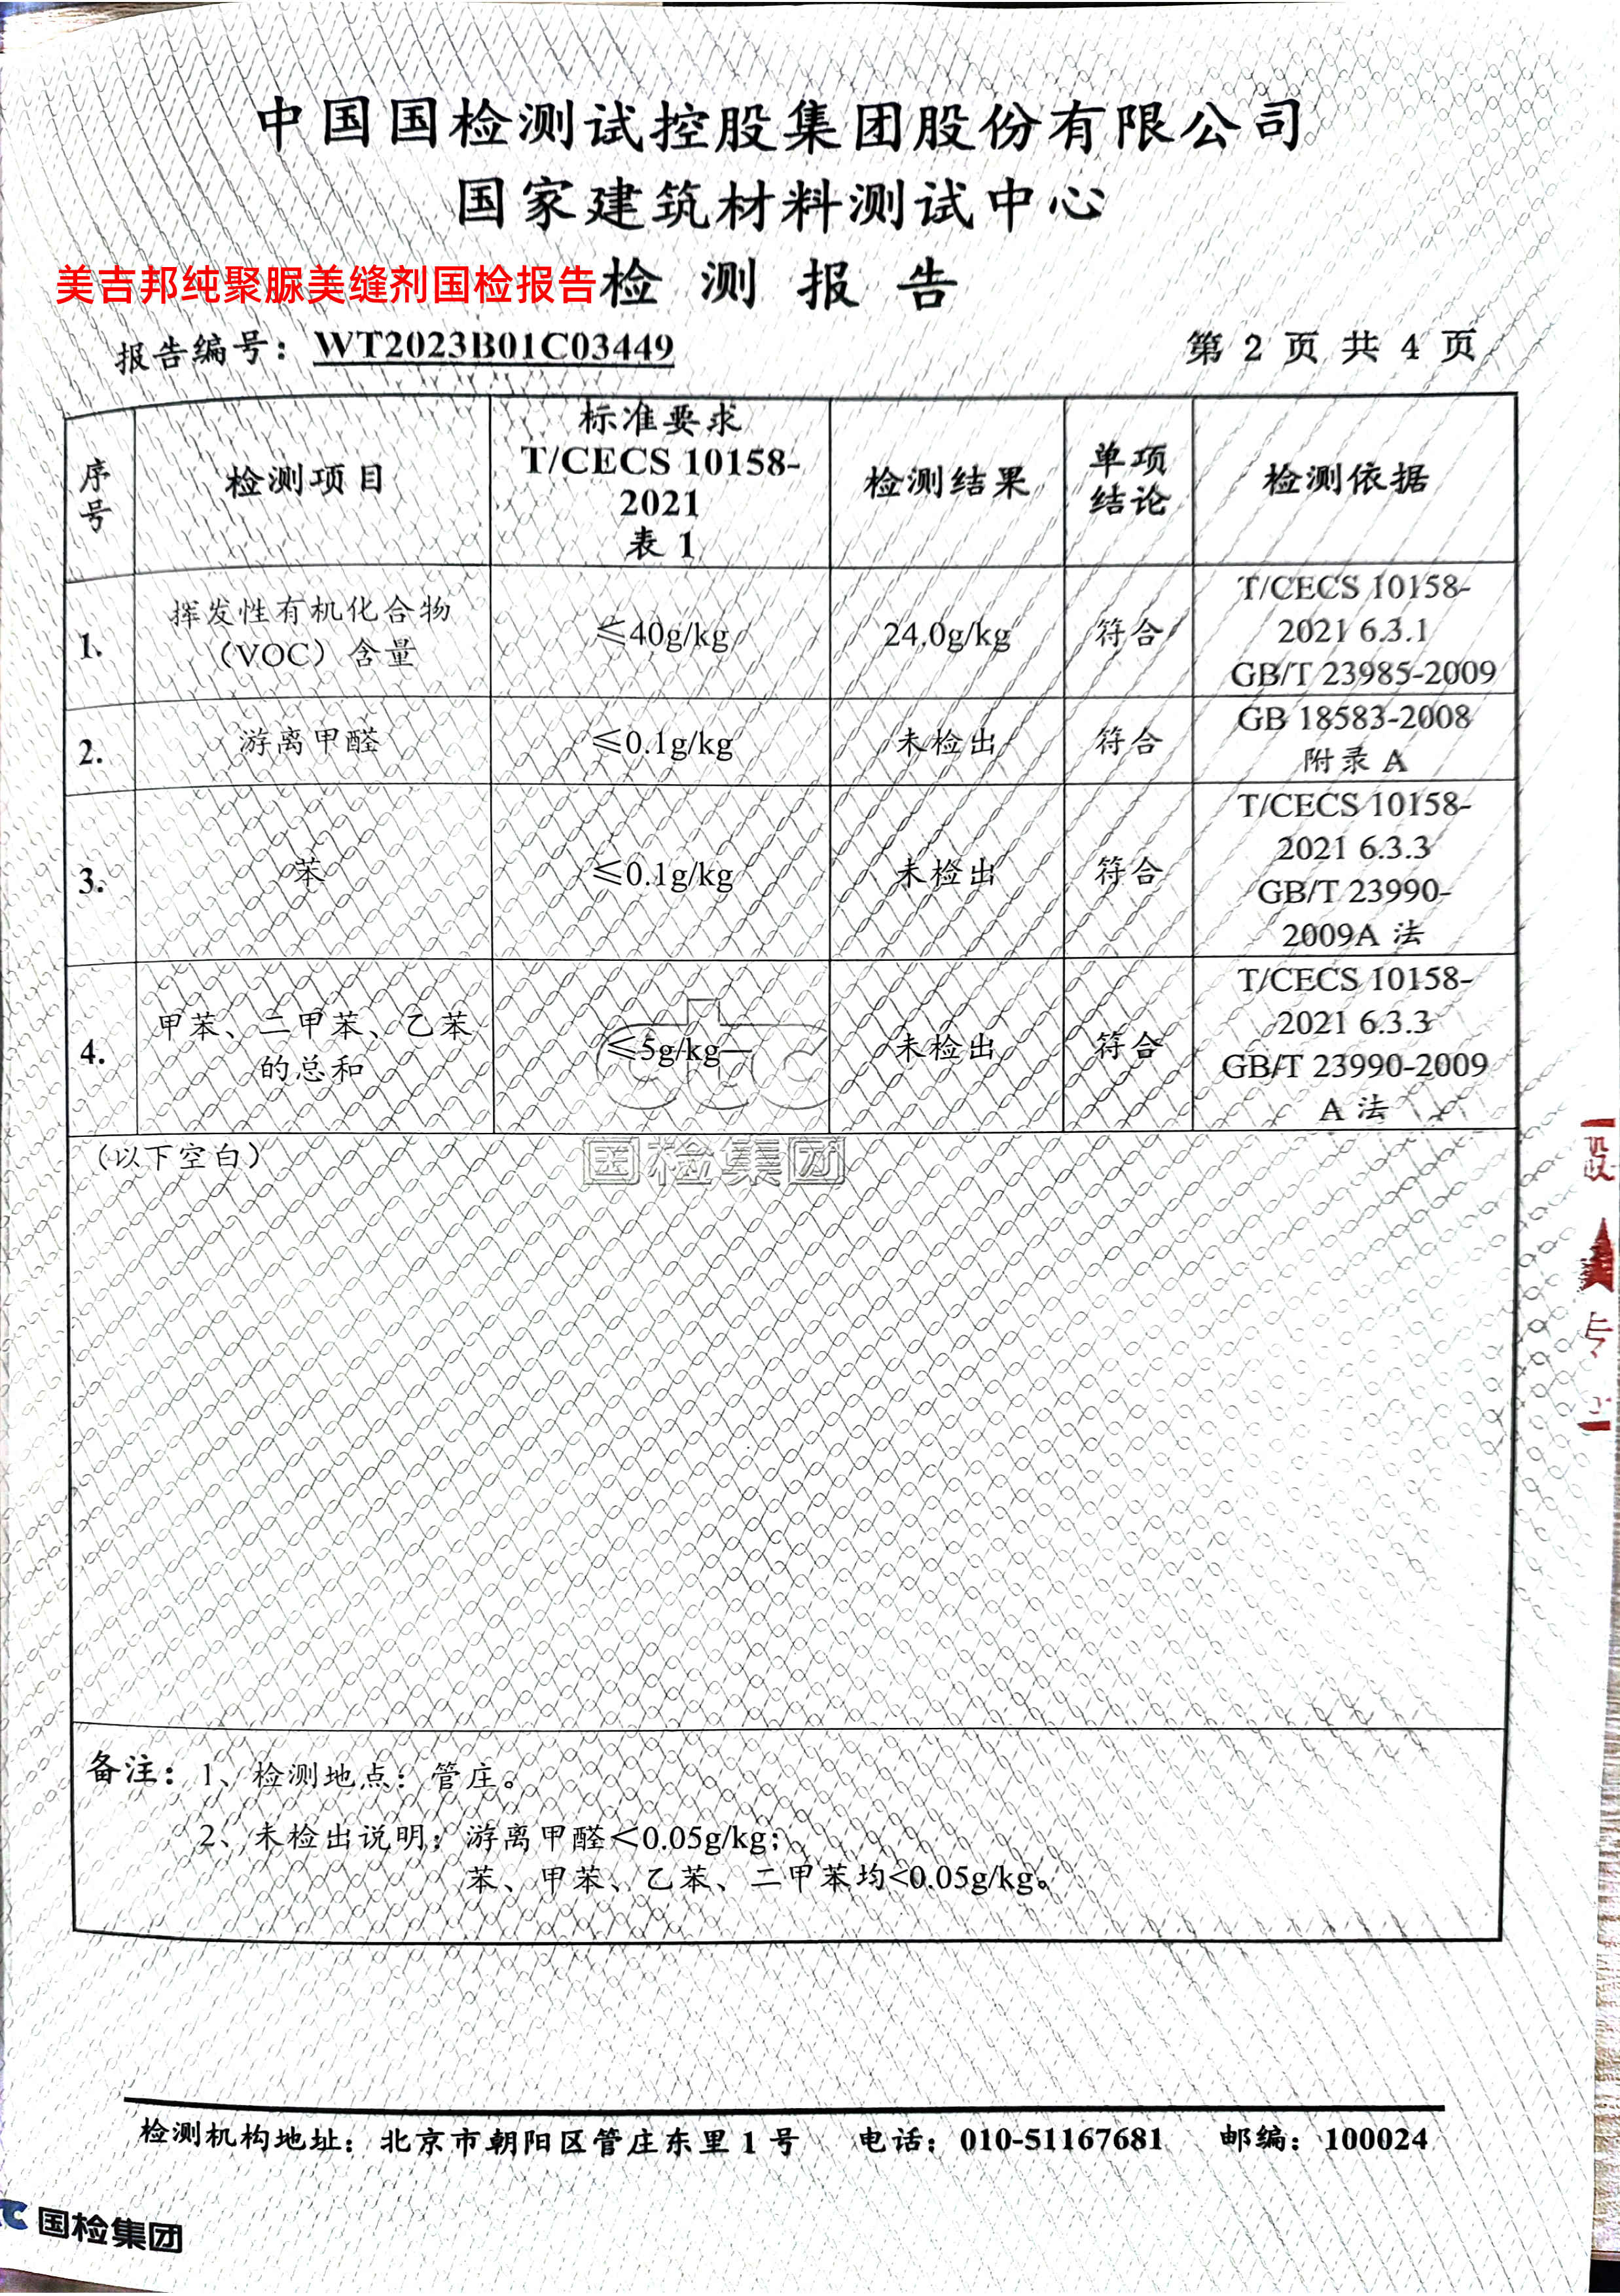 中国国检测试控股集团股份有限公司
国家建筑材料测试中心
美吉邦纯聚脲美缝剂国检报告检测报告
报告编号：WT2023B01C03449 第 2 页 共 4 页
序号 检测项目 标准要求 T/CECS 10158-2021 表 1 检测结果 单项结论 检测依据
1. 挥发性有机化合物（VOC）含量 ≤40g/kg 24.0g/kg 符合 T/CECS 10158-2021 6.3.1 GB/T 23985-2009
2. 游离甲醛 ≤0.1g/kg 未检出 符合 GB 18583-2008 附录 A
3. 苯 ≤0.1g/kg 未检出 符合 T/CECS 10158-2021 6.3.3 GB/T 23990-2009A 法
4. 甲苯、二甲苯、乙苯的总和 ≤5g/kg 未检出 符合 T/CECS 10158-2021 6.3.3 GB/T 23990-2009 A 法
（以下空白）
ctc
国检集团
备注：1、检测地点：管庄。
2、未检出说明：游离甲醛<0.05g/kg；
苯、甲苯、乙苯、二甲苯均<0.05g/kg。
检测机构地址：北京市朝阳区管庄东里 1 号 电话：010-51167681 邮编：100024
国检集团